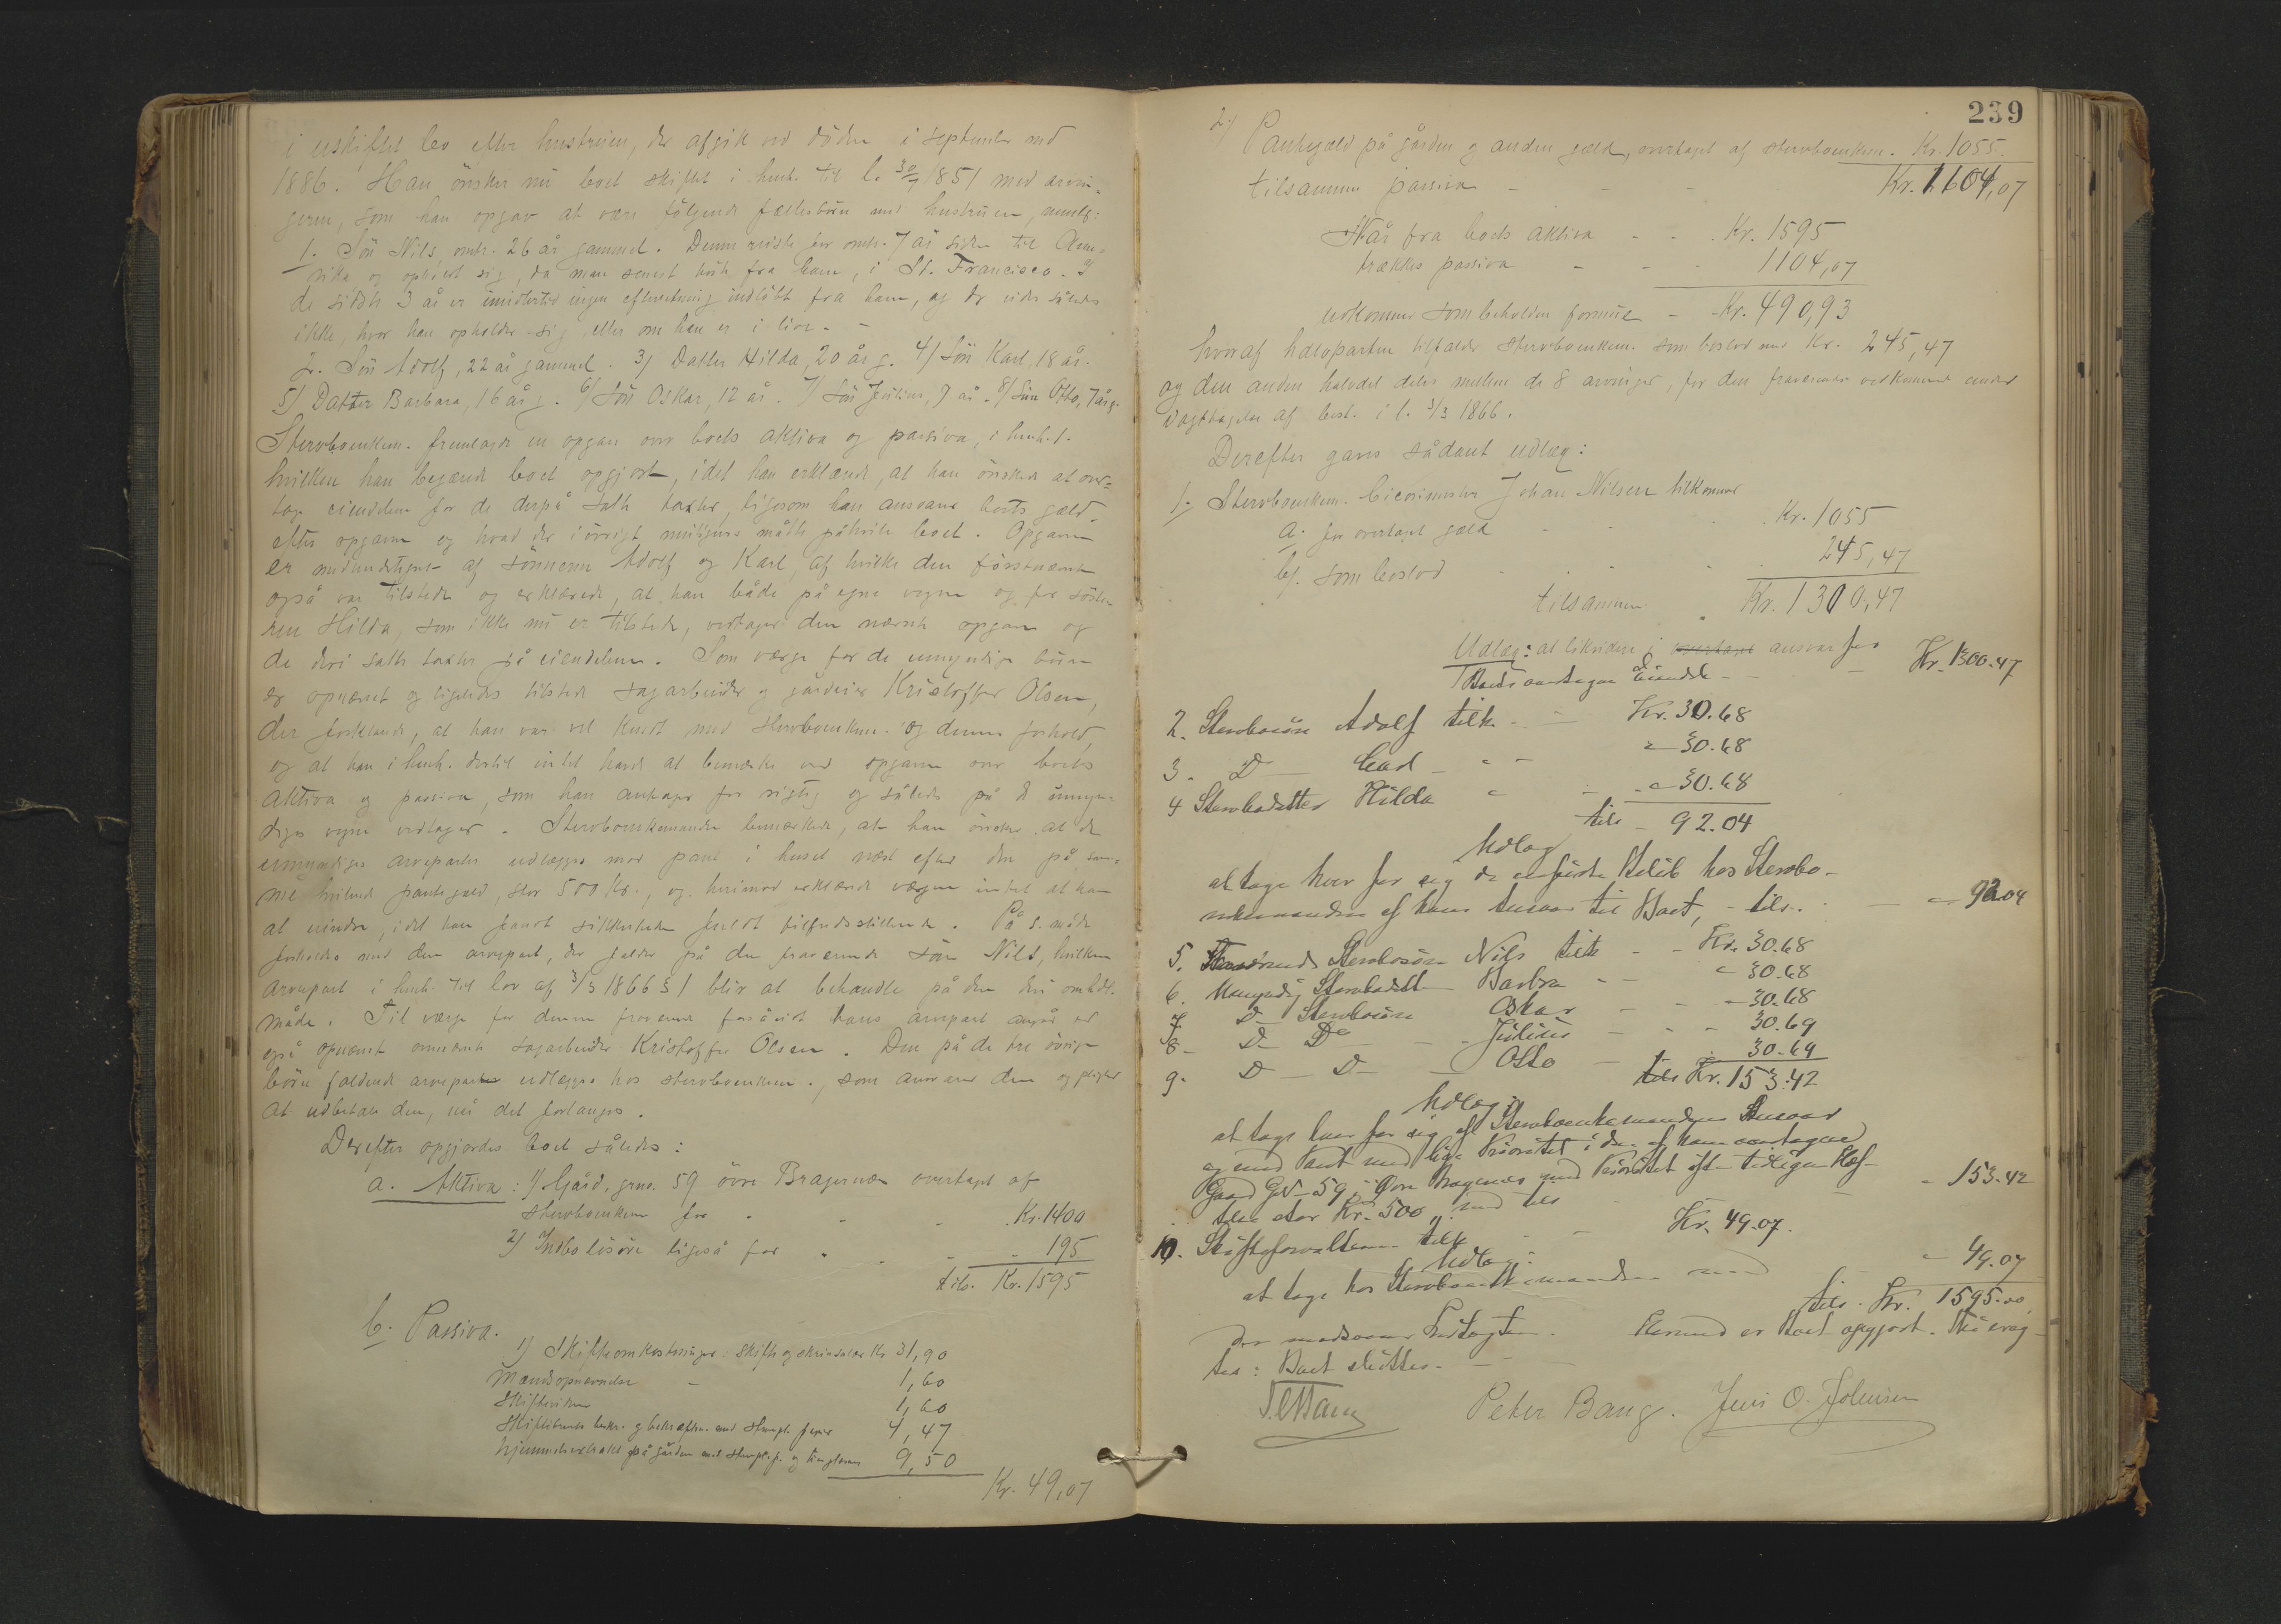 i uskiftet bo efter hustruen, der afgik ved döden i september md
1886. Han önsker nu boet skiftet i henh. til l. 30/7 1851 med arvin-
gerne, som han opgav at være følgende fællesbörn med hustruen, nemlig:
1. Sön Nils, omtr. 26 år gammel. Denne reiste for omtr. 7 år siden til Ame-
rika og opholdt sig, da man senest hörte fra ham, i St. Francisco. I
de sidste 3 år er imidlertid ingen efterretning indløbt fra ham, og der vides således
ikke, hvor han opholder sig eller om han er i live. -
2. Sön Adolf, 22 år gammel. 3) Datter Hilda, 20 år g. 4) Sön Karl, 18 år.
5) Datter Barbara, 16 år g. 6) Sön Oskar, 12 år. 7) Sön Julius, 9 år. 8) Sön Otto, 7 år g.
Stervboenkem. fremlagde en opgave over boets aktiva og passiva, i henh. t.
hvilken han begærede boet opgjort, idet han erklærede, at han önsker at over-
tage eiendelene for de derpå satte taxter, ligesom han ansvarer boets gæld
efter opgaven og hvad der iövrigt muligens måtte påhvile boet. Opgaven
er medunderskrevet af sönnerne Adolf og Karl, af hvilke den förstnævnte
også var tilstede og erklærede, at han både på egne vegne og for söste-
ren Hilda, som ikke nu er tilstede, vedtager den nævnte opgave og
de deri satte taxter på eiendelene. Som værge for de umyndige börn
er opnævnt og ligeledes tilstede sagarbeider og gårdeier Kristoffer Olsen,
der forklarede, at han var vel kjendt med stervboenkem. og dennes forhold,
og at han i henh. dertil intet havde at bemærke ved opgaven over boets
aktiva og passiva, som han antager for rigtig og således på de umyn-
diges vegne vedtager. Stervboenkemanden bemærkede, at han önsker at de
umyndiges arveparter udlægges mod pant i huset næst efter den på sam-
me hvilende pantegæld, stor 500 Kr., og herimod erklærede værgen intet at have
at erindre, idet han fandt sikkerheden fuldt tilfredsstillende. På s. måde
forholdes med den arvepart, der falder på den fraværende sön Nils, hvilken
arvepart i henh. til lov af 3/3 1866 § 1 blir at behandle på den deri omhdlt.
måde. Til værge for denne fraværende forsåvidt hans arvepart angår er
også opnævnt ovennævnte sagarbeider Kristoffer Olsen. Den på de tre övrige
börn faldende arvepart udlægges hos stervboenkem., som ansvarer den og pligter
at udbetale den, når det forlanges.
Derefter opgjordes boet således:
a. Aktiva: 1) Gård, grno. 59 övre Bragernæs overtaget af
stervboenkem for - - - Kr. 1400
2) Indbo lösöre ligeså for - - - 195
tils. Kr. 1595
b. Passiva.
1) Skifteomkostninger: skifte og skrivsalær Kr 31,90
Mændsopnævnelse - 1,60
Skiftevidner 1,60
Skiftebrevets beskr. og bekræftn. med stempl. papir 4,47
hjemmelsextrakt på gården med stempl. p. og tinglæsn. 9,50
Kr. 49,07
239
2) Pantegæld på gården og anden gæld, overtaget af stervboenkem. Kr. 1055.
tilsammen passiva - - - Kr. 1604,07
Når fra boets aktiva - - Kr. 1595
trækkes passiva - - - 1104,07
udkommer som beholden formue - Kr. 490,93
hvoraf halvparten tilfalder stervboenkem. som boslod med Kr. 245,47
og den anden halvdel deles mellem de 8 arvinger, for den fraværendes vedkommende under
iagttagelse af best. i l. 3/3 1866.
Derefter gaves sådant udlæg:
1. Stervboenkem. Johan Nilsen tilkommer
a. for overtaget gæld - - Kr. 1055
b. som boslod - - - 245,47
tilsammen Kr. 1300,47
Udlæg: at likvidere i overtaget ansvar for
Boets overtagne Eiendele - - Kr. 1300.47
2. Stervbosön Adolf tilk. - Kr. 30.68
3. D - Carl - " - " 30.68
4 Stervbodatter Hilda " - " 30.68
tils - 92.04
Udlæg
at tage hver for sig de anførte Beløb hos Stervbo-
enkemanden af hans Ansvar til Boet, - tils. - - " 92.04
5. Fraværende Stervbosøn Nils tilk - Kr. 30.68
6. Umyndig Stervbodatt. Barbra - - " 30.68
7 D - Stervbosön Oskar - - " 30.68
8 - D D - - Julius - - - 30.69
9. D - D - - Otto - 30.69
tils Kr. 153.42
Udlæg:
at tage hver for sig af Stervboenkemandens Ansvar
og med Pant med lige Prioritet i den af ham overtagne
Gaard GN 59 i Øvre Bragernes med Prioritet efter tidligere Hef-
telse stor Kr. 500 „ med tils - - " 153.42
10. Skifteforvalteren tilk - - Kr. 49.07.
Udlæg:
at tage hos Stervboenkemanden med - " 49.07
tils. Kr. 1595.00
der modsvarer Indtægten. Hermed er Boet opgjort. Thi erag-
tes: Boet sluttes. -
Peter Bang. Jens O. Johnsen